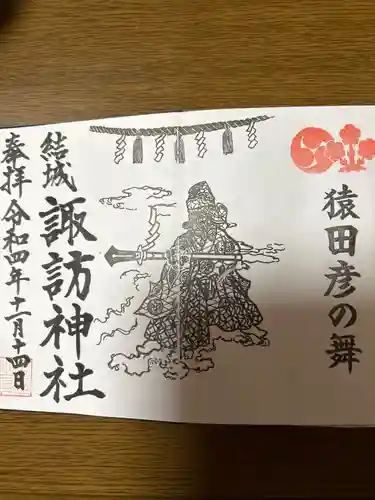 猿田彦の舞
結城
諏訪神社
奉拝 令和四年十一月十四日